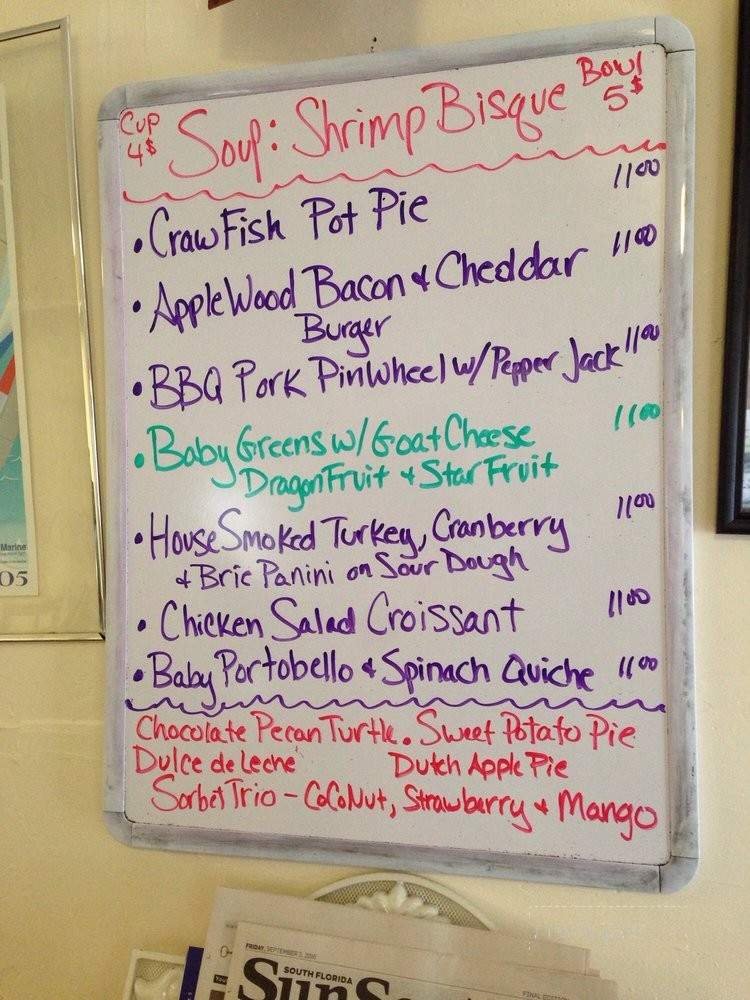 Cup 4$
Soup: Shrimp Bisque
Bowl 5$
• CrawFish Pot Pie 11.00
• AppleWood Bacon & Cheddar 11.00
Burger
• BBQ Pork Pinwheel w/ Pepper Jack 11.00
• Baby Greens w/ Goat Cheese 11.00
DragonFruit & Star Fruit
• House Smoked Turkey, Cranberry 11.00
& Brie Panini on Sour Dough
• Chicken Salad Croissant 11.00
• Baby Portobello & Spinach Quiche 11.00
Chocolate Pecan Turtle. Sweet Potato Pie
Dulce de Leche Dutch Apple Pie
Sorbet Trio - CoCoNut, Strawberry & Mango
Marine
05
FRIDAY, SEPTEMBER
SOUTH FLORIDA
SunSe
FINAL EDITION